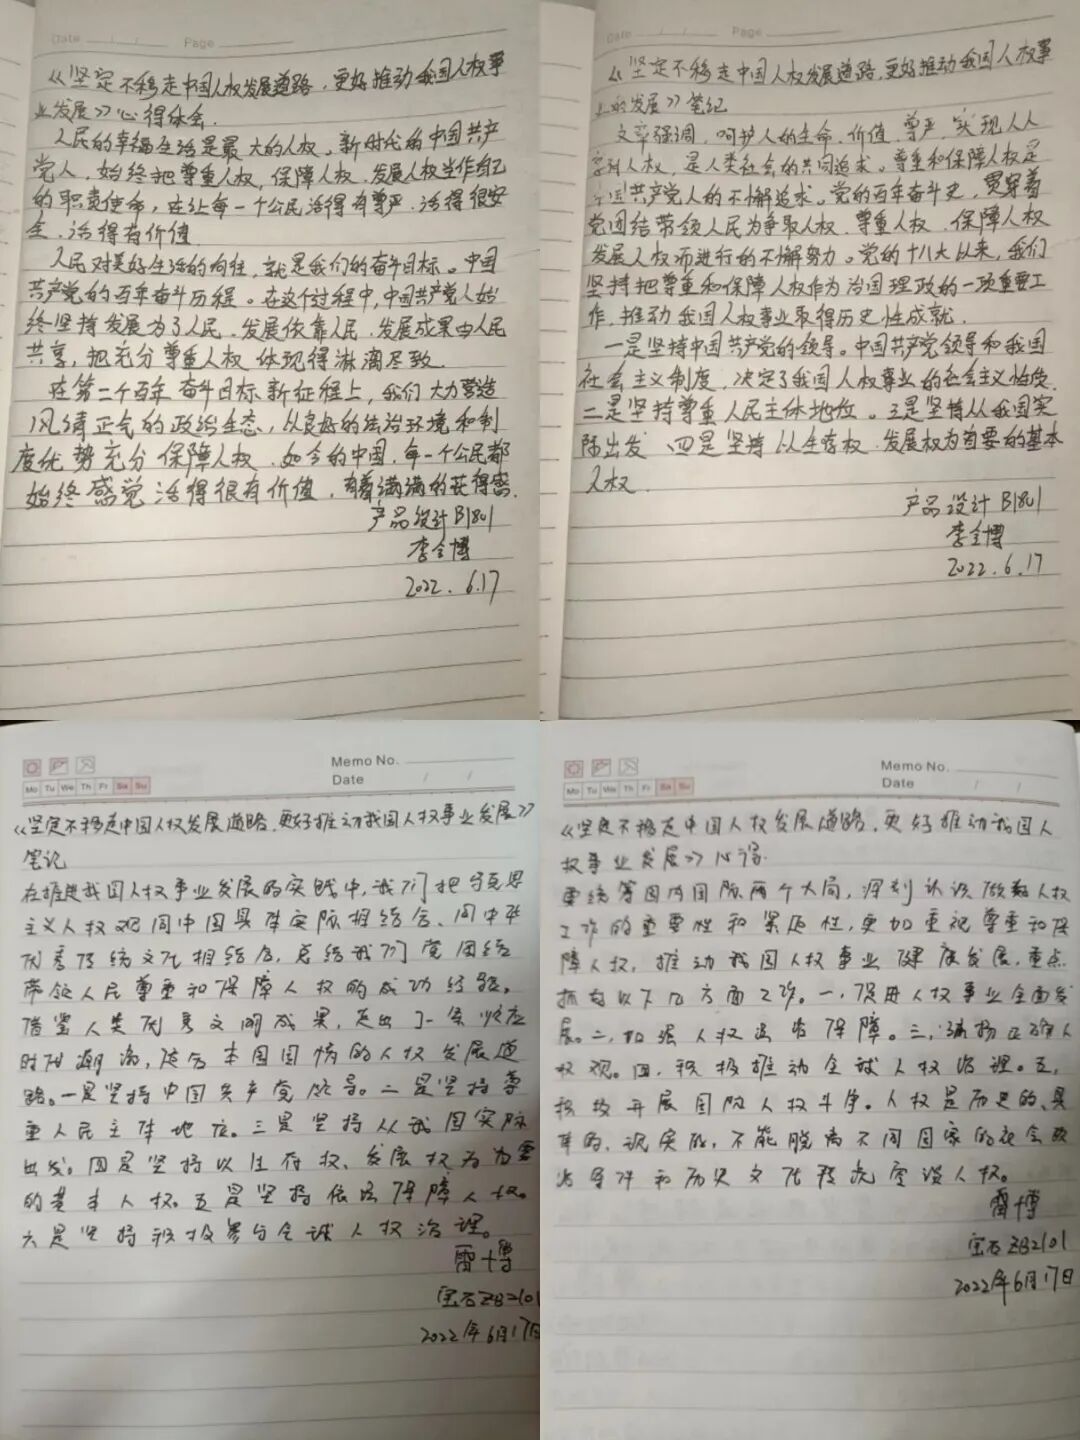 Date / / Page
《坚定不移走中国人权发展道路，更好推动我国人权事
业发展》心得体会.
人民的幸福生活是最大的人权。新时代的中国共产
党人，始终把尊重人权，保障人权、发展人权当作自己
的职责使命，在让每一个公民活得有尊严、活得很安
全、活得有价值
人民对美好生活的向往，就是我们的奋斗目标。中国
共产党的百年奋斗历程。在这个过程中，中国共产党人始
终坚持发展为了人民、发展依靠人民、发展成果由人民
共享，把充分尊重人权体现得淋漓尽致.
在第二个百年奋斗目标新征程上，我们大力营造
风清正气的政治生态，从良好的法治环境和制
度优势充分保障人权、如今的中国，每一个公民都
始终感觉活得很有价值，有着满满的获得感.
产品设计B1801
李全博
2022.6.17
Date / / Page
《坚定不移走中国人权发展道路，更好推动我国人权事
业的发展》笔纪
文章强调，呵护人的生命、价值、尊严，实现人人
享有人权，是人类社会的共同追求。尊重和保障人权是
中国共产党人的不懈追求。党的百年奋斗史，贯穿着
党团结带领人民为争取人权、尊重人权、保障人权
发展人权而进行的不懈努力。党的十八大以来，我们
坚持把尊重和保障人权作为治国理政的一项重要工
作，推动我国人权事业取得历史性成就.
一是坚持中国共产党的领导。中国共产党领导和我国
社会主义制度，决定了我国人权事业的社会主义性质.
二是坚持尊重人民主体地位。三是坚持从我国实
际出发、四是坚持以生存权、发展权为首要的基本
人权.
产品设计B1801
李全博
2022.6.17
Memo No.
Mo Tu We Th Fr Sa Su Date / /
《坚定不移走中国人权发展道路，更好推动我国人权事业发展》
笔记
在推进我国人权事业发展的实践中，我们把马克思
主义人权观同中国具体实际相结合、同中华
优秀传统文化相结合，总结我们党团结
带领人民尊重和保障人权的成功经验。
借鉴人类优秀文明成果，走出了一条顺应
时代潮流，适合本国国情的人权发展道
路。一是坚持中国共产党领导。二是坚持尊
重人民主体地位。三是坚持从我国实际
出发。四是坚持以生存权、发展权为首要
的基本人权。五是坚持依法保障人权。
六是坚持积极参与全球人权治理。
雷博
宝石ZB2101
2022年6月17日
Memo No.
Mo Tu We Th Fr Sa Su Date / /
《坚定不移走中国人权发展道路，更好推动我国人
权事业发展》心得
要统筹国内国际两个大局，深刻认识做好人权
工作的重要性和紧迫性，更加重视尊重和保
障人权，推动我国人权事业健康发展，重点
抓好以下几方面工作。一，促进人权事业全面发
展。二，加强人权法治保障。三，弘扬正确人
权观。四，积极推动全球人权治理。五，
积极开展国际人权斗争。人权是历史的、具
体的、现实的，不能脱离不同国家的社会政
治条件和历史文化传统空谈人权。
雷博
宝石ZB2101
2022年6月17日